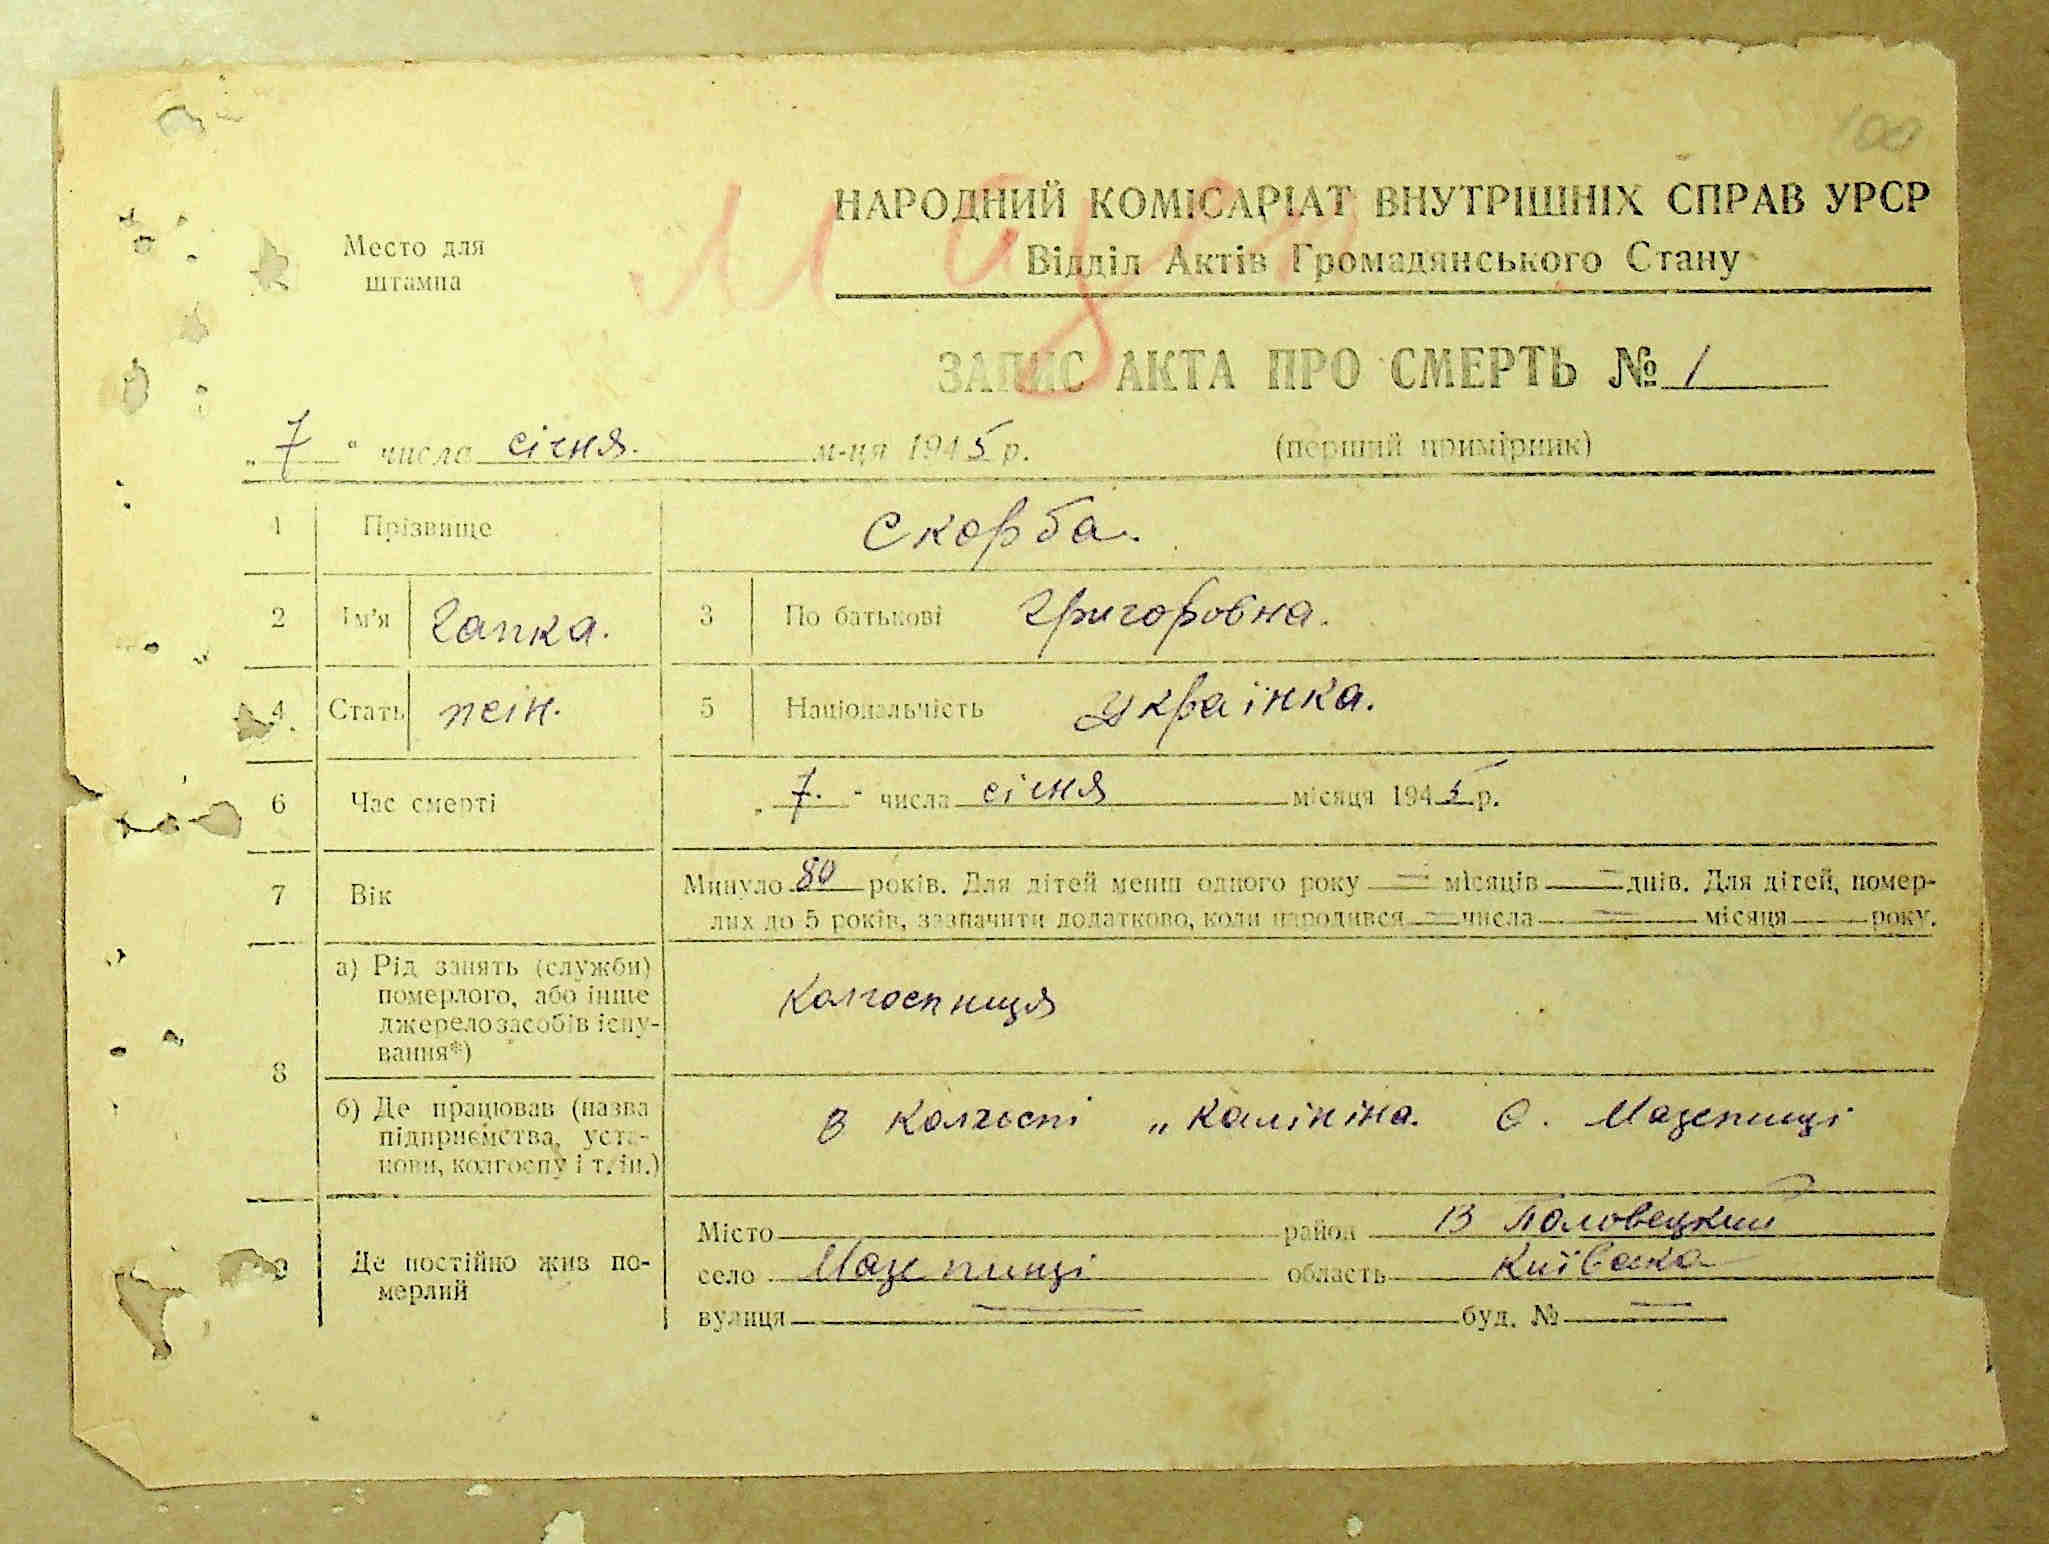 100
НАРОДНИЙ КОМІСАРІАТ ВНУТРІШНІХ СПРАВ УРСР
Место для
штампа
Відділ Актів Громадянського Стану
ЗАПИС АКТА ПРО СМЕРТЬ № 1
„7“ числа січня. м-ця 1945 р.
(перший примірник)
1 Прізвище Скорба.
2 Ім'я Гапка. 3 По батькові Григоровна.
4 Стать жін. 5 Національність Українка.
6 Час смерті „7.“ числа січня місяця 1945 р.
7 Вік Минуло 80 років. Для дітей менш одного року = місяців = днів. Для дітей, помер-
лих до 5 років, зазначити додатково, коли народився = числа = місяця року.
8 а) Рід занять (служби)
померлого, або інше
джерело засобів існу-
вання*)
Колгоспниця
б) Де працював (назва
підприємства, уста-
нови, колгоспу і т. ін.)
в колгоспі „Калініна. С. Мазепинці
9 Де постійно жив по-
мерлий
Місто район В Половецкий
село Мазепинці область Київска
вулиця = буд. № =